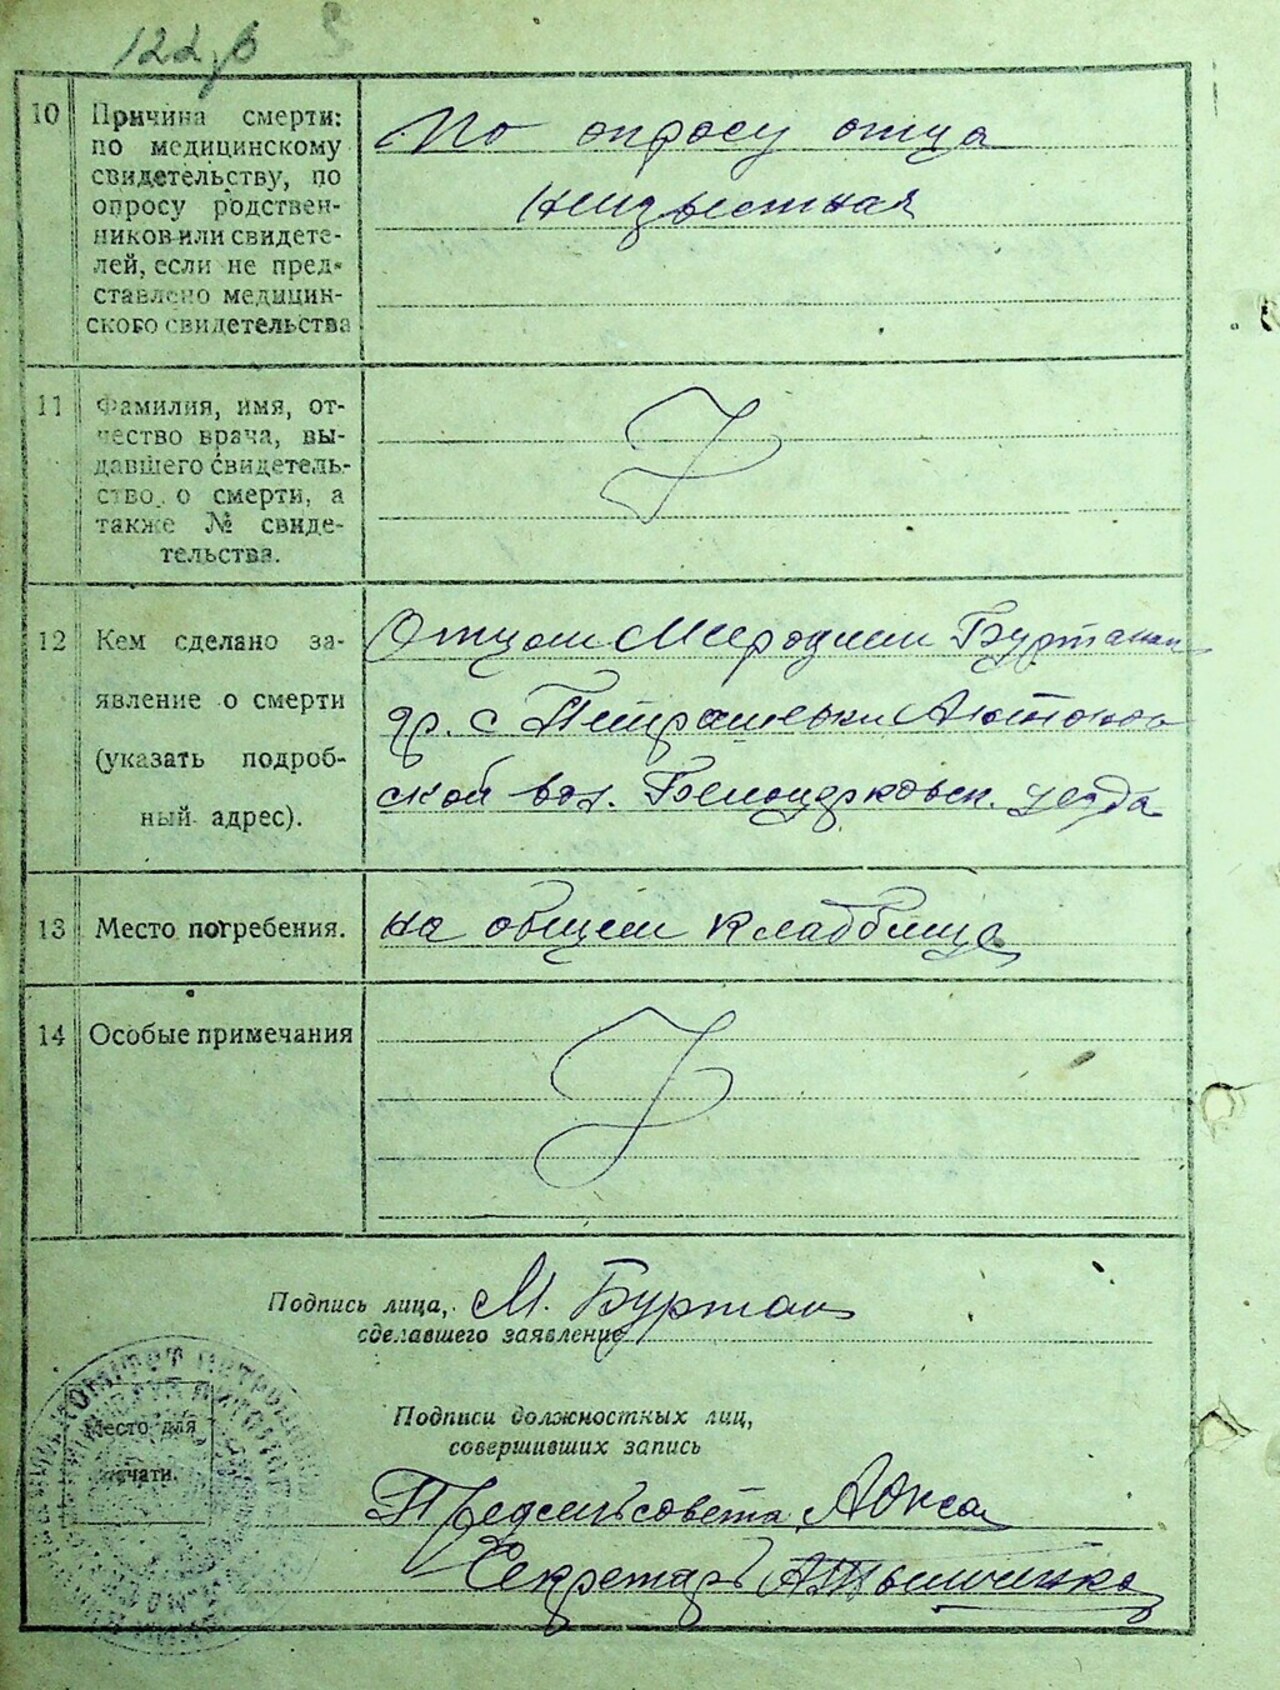 10 Причина смерти:
по медицинскому
свидетельству, по
опросу родствен-
ников или свидете-
лей, если не пред-
ставлено медицин-
ского свидетельства
По опросу отца
неизвестная
11 Фамилия, имя, от-
чество врача, вы-
давшего свидетель-
ство о смерти, а
также № свиде-
тельства.
12 Кем сделано за-
явление о смерти
(указать подроб-
ный адрес).
Отцом Буртаком
гр. с Петрашевки Антонов
ской вол. Белоцерковск. уезда
13 Место погребения.
на общем кладбище
14 Особые примечания
Подпись лица,
сделавшего заявление
М. Буртак
Место для
печати.
Подписи должностных лиц,
совершивших запись
Предсельсовета
Секретарь